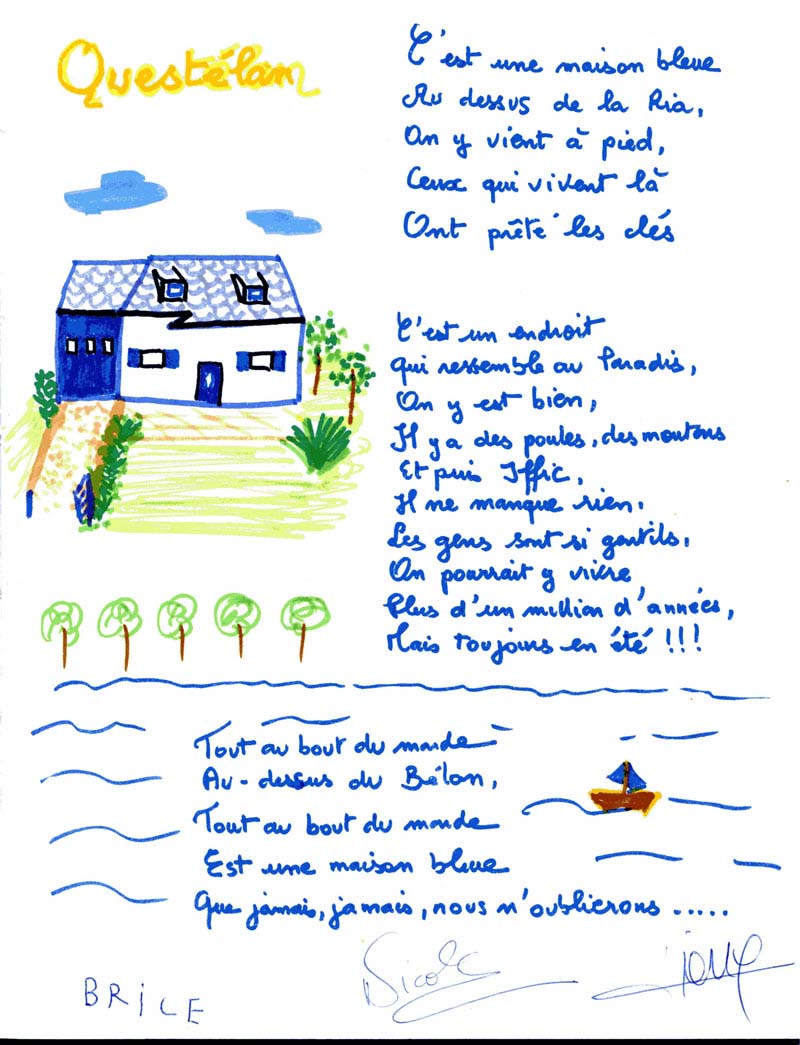 Questélan
C'est une maison bleue
Au dessus de la Ria,
On y vient à pied,
Ceux qui vivent là
Ont prêté les clés
C'est un endroit
qui ressemble au Paradis,
On y est bien,
Il y a des poules, des moutons
Et puis Iffic,
Il ne manque rien.
Les gens sont si gentils,
On pourrait y vivre
Plus d'un million d'années,
Mais toujours en été !!!
Tout au bout du monde
Au-dessus du Bélon,
Tout au bout du monde
Est une maison bleue
Que jamais, jamais, nous n'oublierons .....
BRICE
Nicole